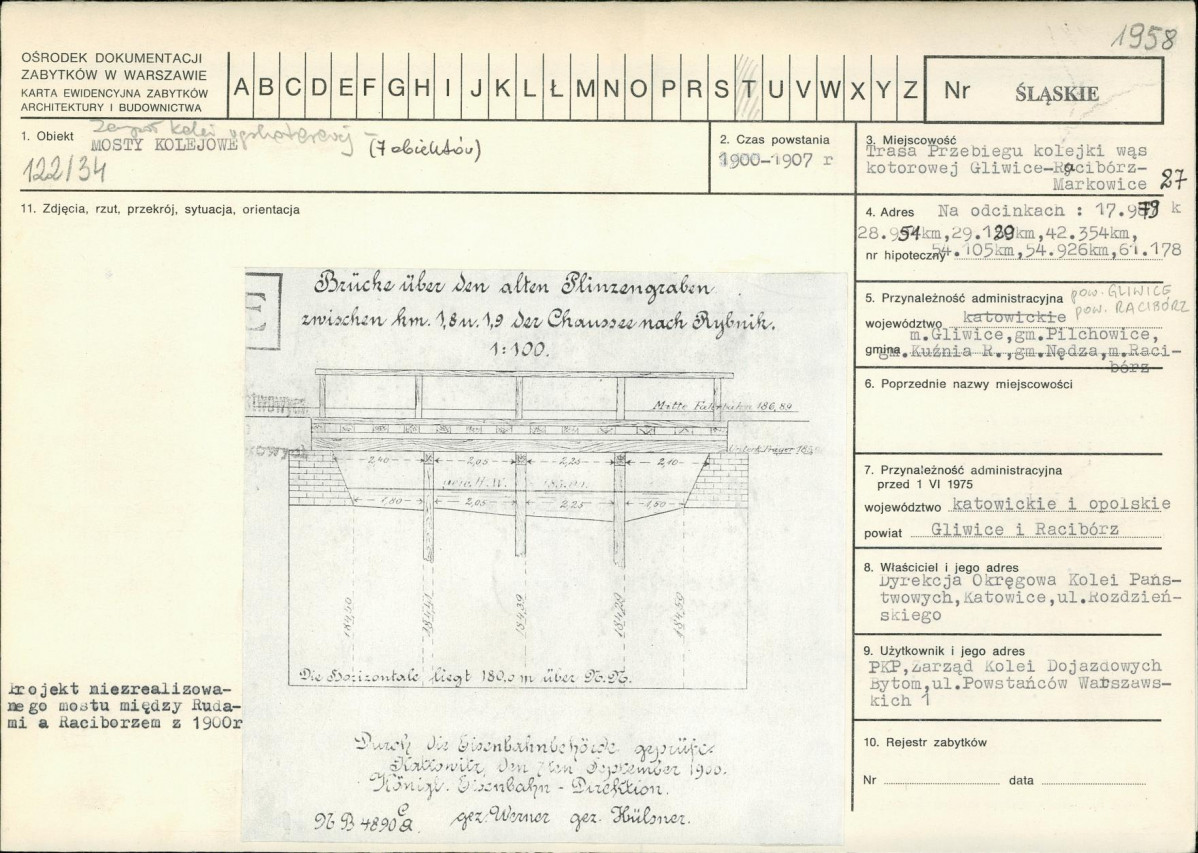 1958
OŚRODEK DOKUMENTACJI
ZABYTKÓW W WARSZAWIE
KARTA EWIDENCYJNA ZABYTKÓW
ARCHITEKTURY I BUDOWNICTWA
A B C D E F G H I J K L Ł M N O P R S T U V W X Y Z
Nr ŚLĄSKIE
1. Obiekt
Zespół kolei wąskotorowej –
MOSTY KOLEJOWE (7 obiektów)
122/34
2. Czas powstania
1900-1907 r
3. Miejscowość
Trasa Przebiegu kolejki wąs
kotorowej Gliwice-Racibórz-
Markowice 27
4. Adres Na odcinkach : 17.979 k
28.954km,29.129km,42.354km,
nr hipoteczny 54.105km,54.926km,61.178
5. Przynależność administracyjna pow. GLIWICE
województwo katowickie pow. RACIBÓRZ
m.Gliwice,gm.Pilchowice,
gmina gm.Kuźnia R.,gm.Nędza,m.Raci-
bórz
6. Poprzednie nazwy miejscowości
7. Przynależność administracyjna
przed 1 VI 1975
województwo katowickie i opolskie
powiat Gliwice i Racibórz
8. Właściciel i jego adres
Dyrekcja Okręgowa Kolei Pańs-
twowych,Katowice,ul.Rozdzień-
skiego
9. Użytkownik i jego adres
PKP,Zarząd Kolei Dojazdowych
Bytom,ul.Powstańców Warszaws-
kich 1
10. Rejestr zabytków
Nr data
11. Zdjęcia, rzut, przekrój, sytuacja, orientacja
E
Brücke über den alten Flinzengraben
zwischen km. 1,8 u. 1,9 der Chaussee nach Rybnik.
1:100.
Mitte Fahrbahn 186,89
2,40 2,05 2,25 2,10
1,80 2,05 2,25 1,50
184,50 184,39 184,50
Die Horizontale liegt 180,0 m über N.N.
Projekt niezrealizowa-
nego mostu między Ruda-
mi a Raciborzem z 1900r
Durch die Eisenbahnbehörde geprüft.
Kattowitz, den 7ten September 1900.
Königl. Eisenbahn-Direktion.
gez. Werner gez. Hülsner.